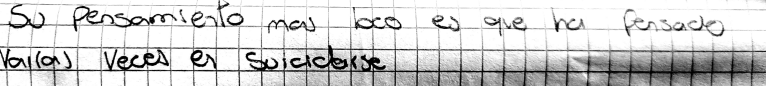 Su pensamiento mas loco es que ha pensado
varias veces en suicidarse